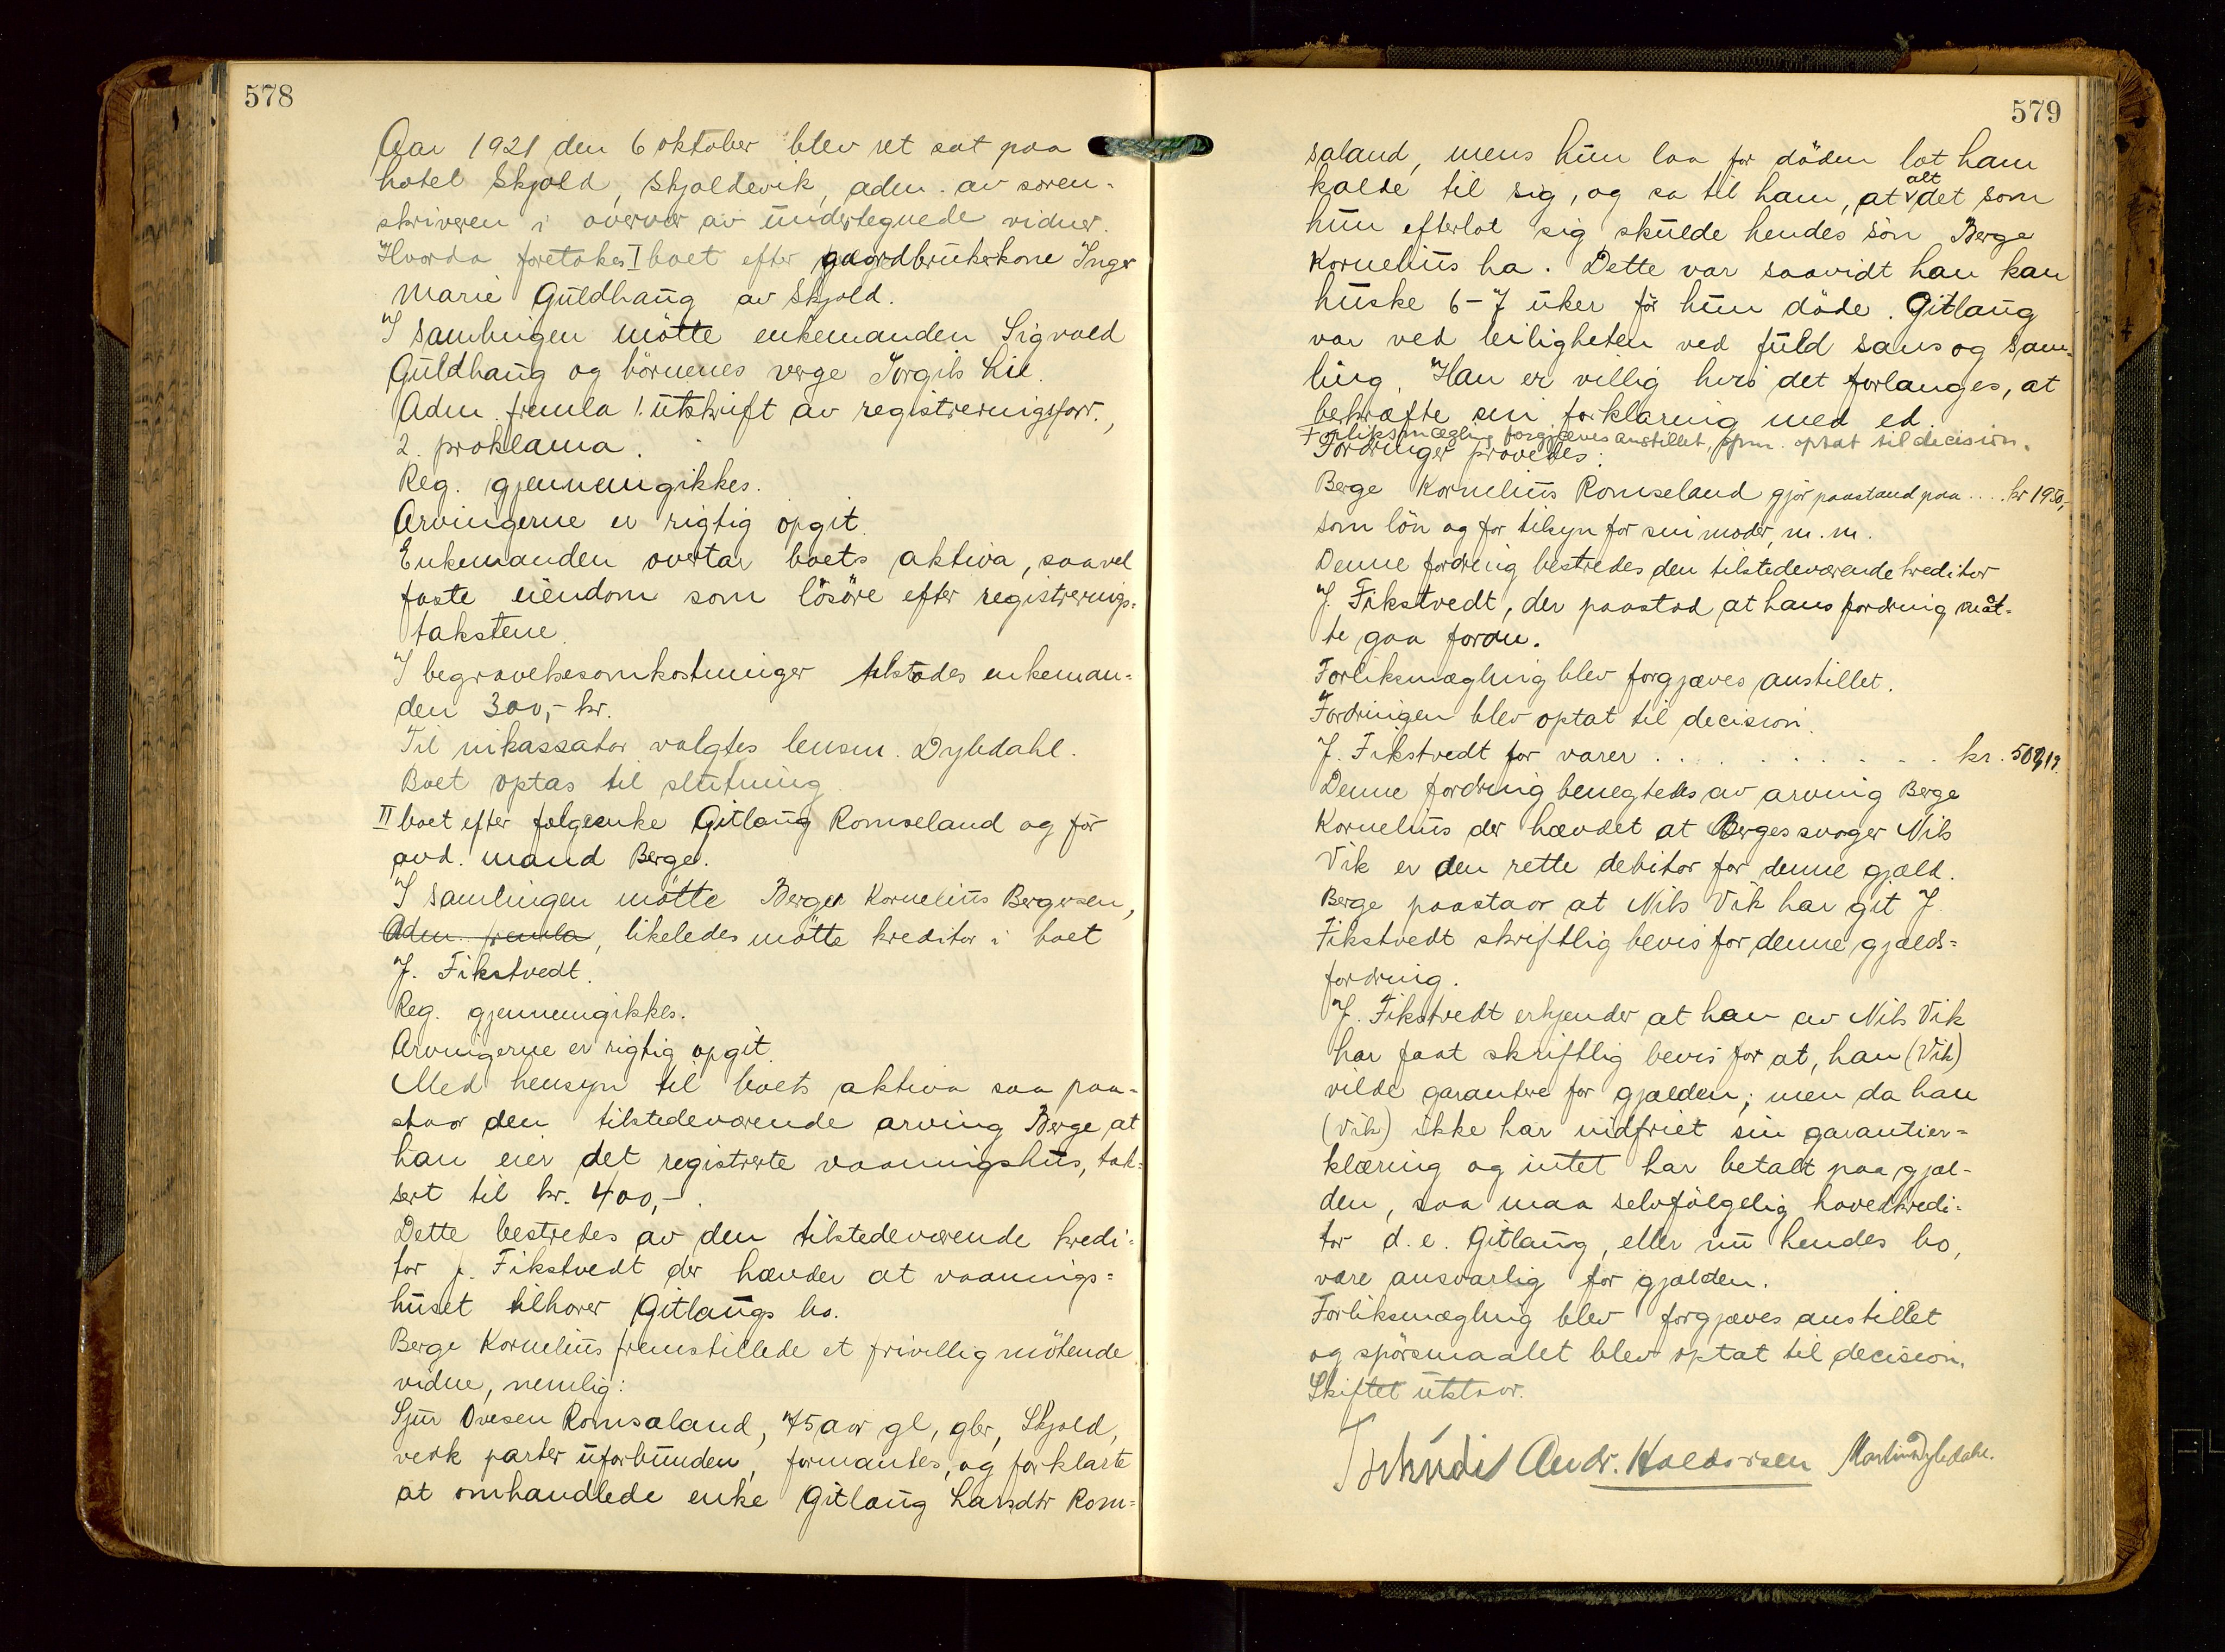 578
Aar 1921 den 6 oktober blev ret sat paa
hotel Skjold, Skjoldevik, adm. av soren-
skriveren i overvær av undertegnede vidner.
Hvorda foretokes I boet efter gaardbrukerkone Inger
Marie Guldhaug av Skjold.
I samlingen mötte enkemanden Sigvald
Guldhaug og börnenes verge Torgils Lie.
Adm. fremla 1. utskrift av registreringsforr.,
2. proklama.
Reg. gjennemgikkes.
Arvingerne er rigtig opgit.
Enkemanden overtar boets aktiva, saavel
faste eiendom som lösöre efter registrerings=
takstene.
I begravelsesomkostninger tilstodes enkeman-
den 300,- kr.
Til inkassator valgtes lensm. Dybdahl.
Boet optas til slutning.
II boet efter folgeenke Gitlaug Romseland og för
avd. mand Berge.
I samlingen mötte Berge Kornelius Bergersen,
Adm. fremla, likeledes mötte kreditor i boet
J. Fikstvedt.
Reg. gjennemgikkes.
Arvingerne er rigtig opgit.
Med hensyn til boets aktiva saa paa-
staar den tilstedeværende arving Berge at
han eier det registrerte vaaningshus, tak-
sert til kr. 400,-.
Dette bestredes av den tilstedeværende kredi-
tor J. Fikstvedt der hævder at vaanings=
huset tilhorer Gitlaugs bo.
Berge Kornelius fremstillede et frivillig mötende
vidne, nemlig:
Sjur Ovesen Romsaland, 75 aar gl, gbr, Skjold,
vedk parter uforbunden, formantes, og forklarte
at omhandlede enke Gitlaug Larsdtr Rom=
579
saland, mens hun laa for döden lot ham
kalde til sig, og sa til ham, at alt det som
hun efterlot sig skulde hendes sön Berge
Kornelius ha. Dette var saavidt han kan
huske 6-7 uker för hun döde. Gitlaug
var ved leiligheten ved fuld sans og sam-
ling. Han er villig hvis det forlanges, at
bekræfte sin forklaring med ed.
Forliksmægling forgjæves anstillet, spm. optat til decision.
Fordringer prövedes:
Berge Kornelius Romseland gjör paastand paa .... kr 1950,
som lön og for tilsyn for sin moder, m. m.
Denne fordring bestredes den tilstedeværende kreditor
J. Fikstvedt, der paastod at hans fordring måt-
te gaa forån.
Forliksmægling blev forgjæves anstillet.
Fordringen blev optat til decision.
J. Fikstvedt for varer . . . . . . . . . . kr.
Denne fordring benegtedes av arving Berge
Kornelius der hævdet at Berges svoger Nils
Vik er den rette debitor for denne gjæld.
Berge paastaar at Nils Vik har git J.
Fikstvedt skriftlig bevis for denne gjælds=
fordring.
J. Fikstvedt erkjender at han av Nils Vik
har faat skriftlig bevis for at, han (Vik)
vilde garantere for gjælden; men da han
(Vik) ikke har indfriet sin garantier=
klæring og intet har betalt paa gjæl-
den, saa maa selvfölgelig hovedkredi-
tor d. e. Gitlaug, eller nu hendes bo,
være ansvarlig for gjælden.
Forliksmægling blev forgjæves anstillet
og spörsmaalet blev optat til decision.
Skiftet utstaar.
Andr. Haldorsen Martin Dybdahl.